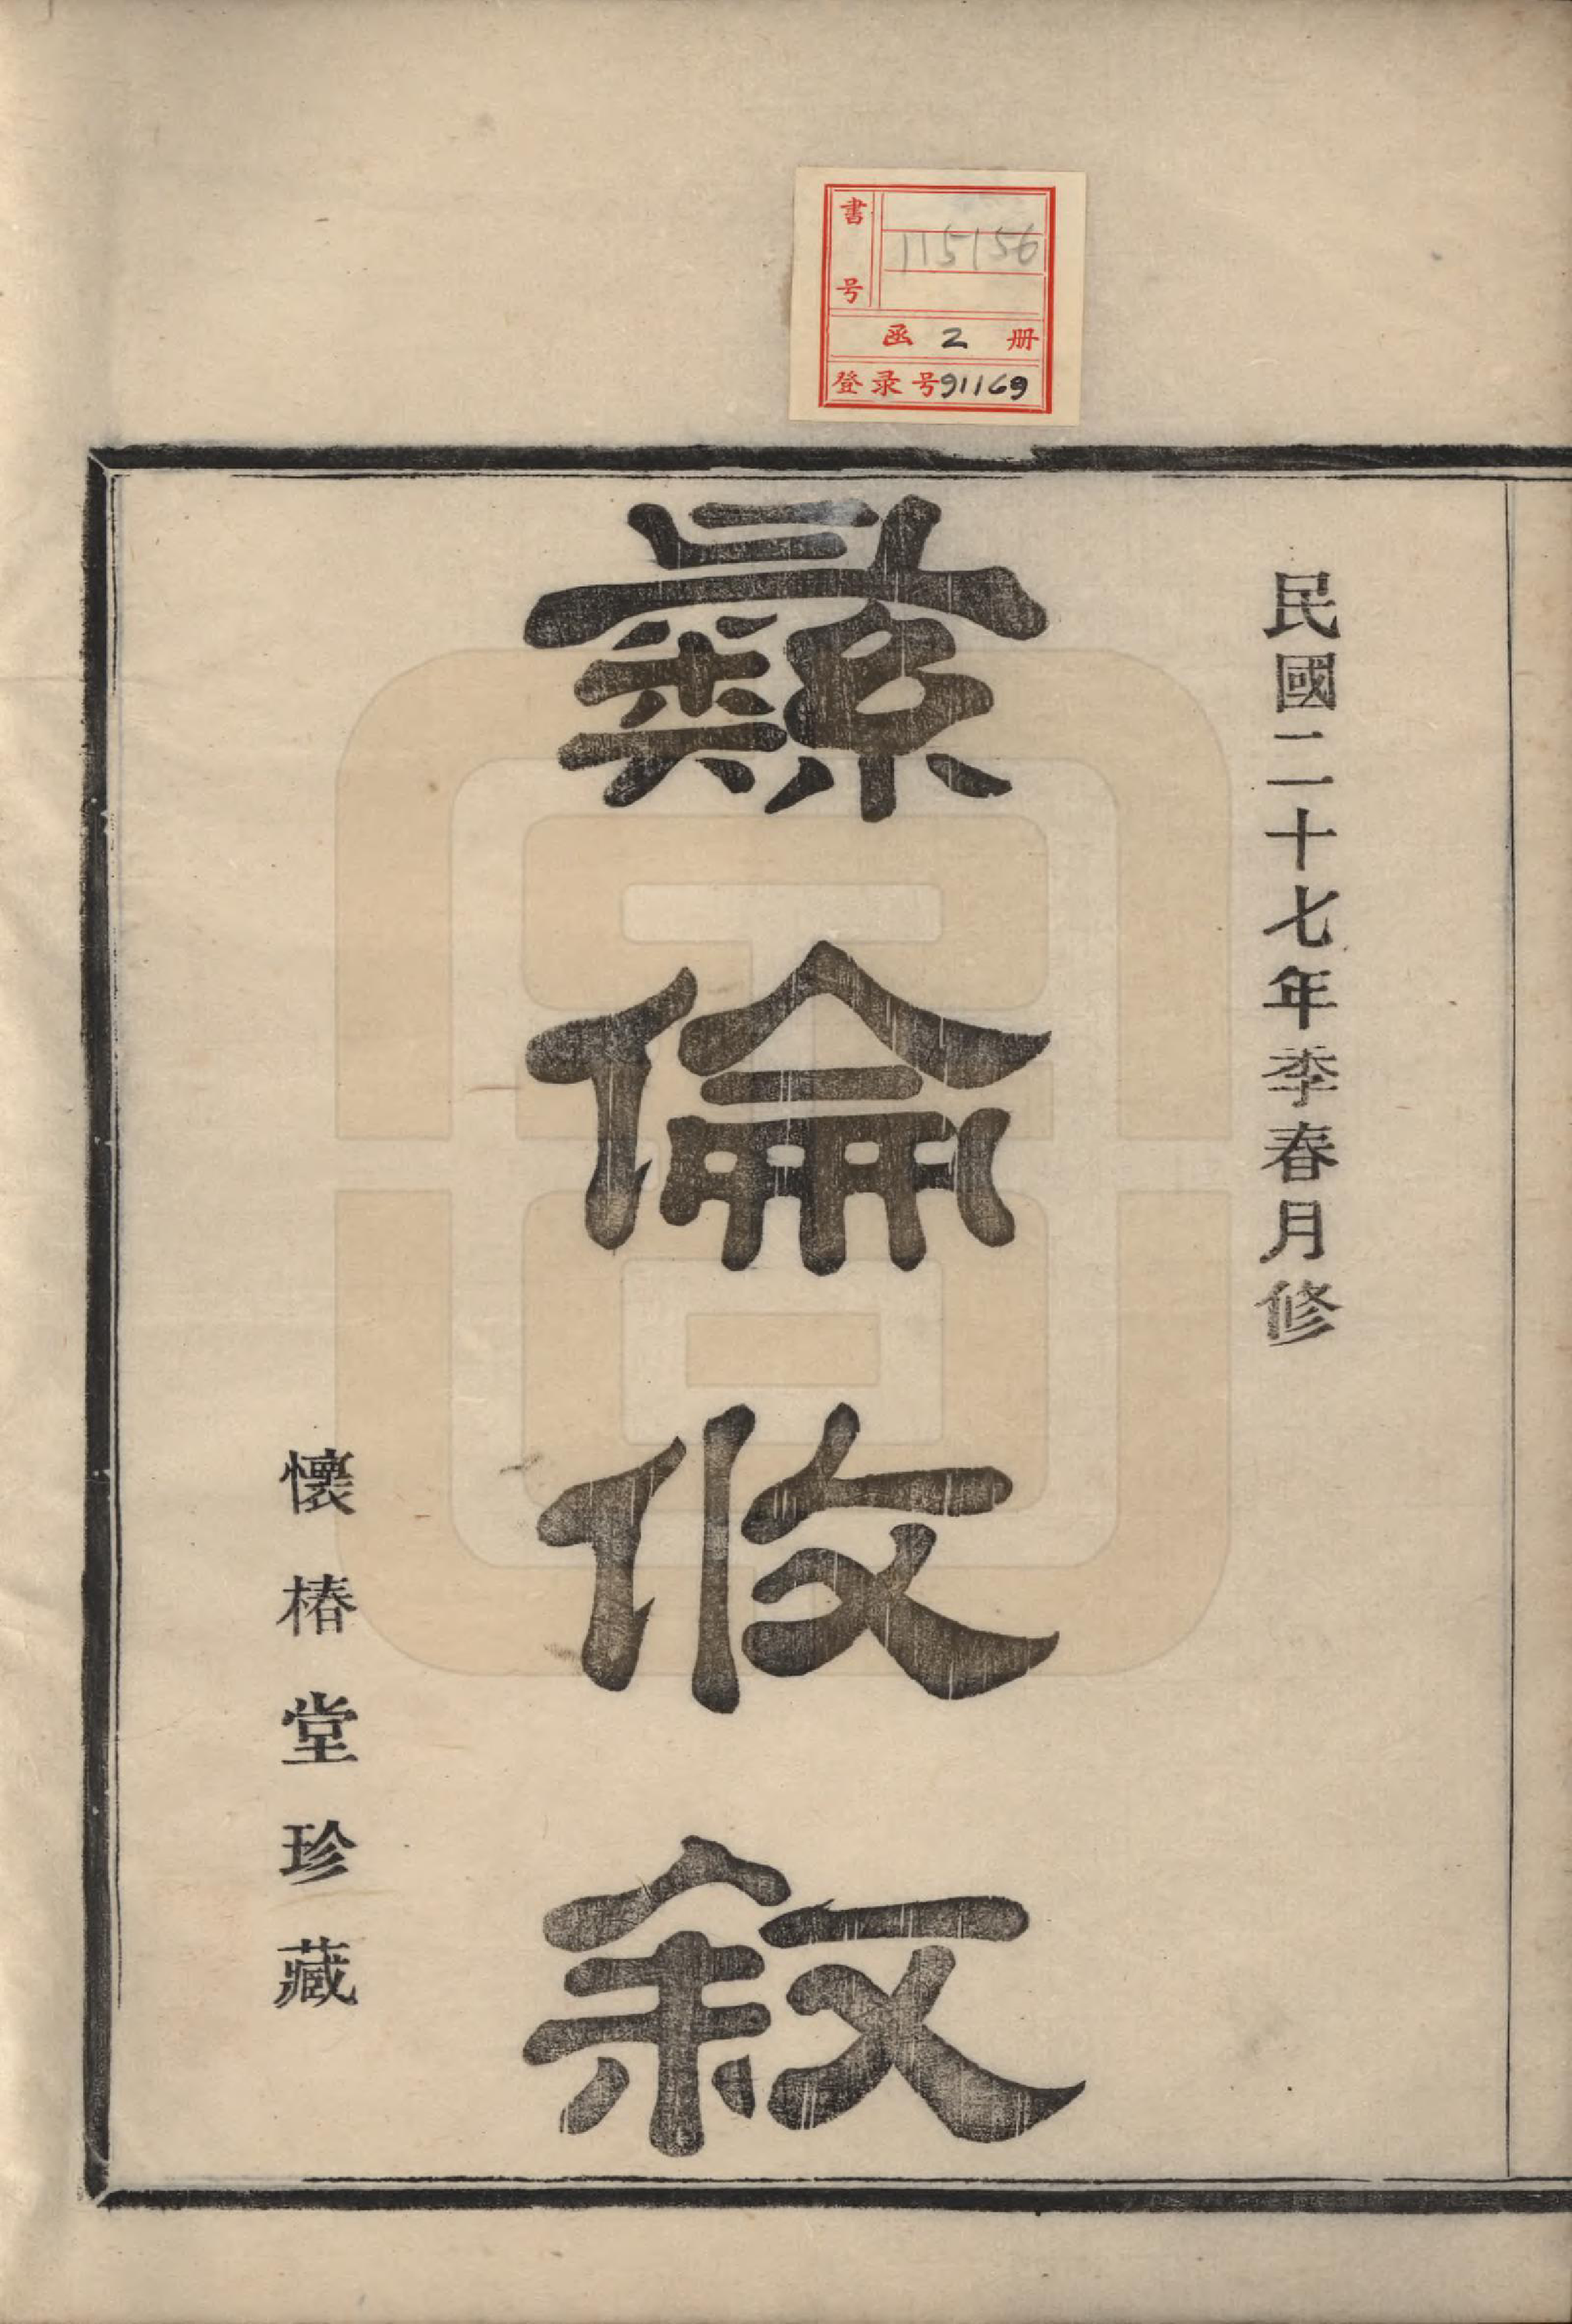 書号
115156
函 2 册
登录号91169
民國二十七年季春月修
彝倫攸敘
懷椿堂珍藏